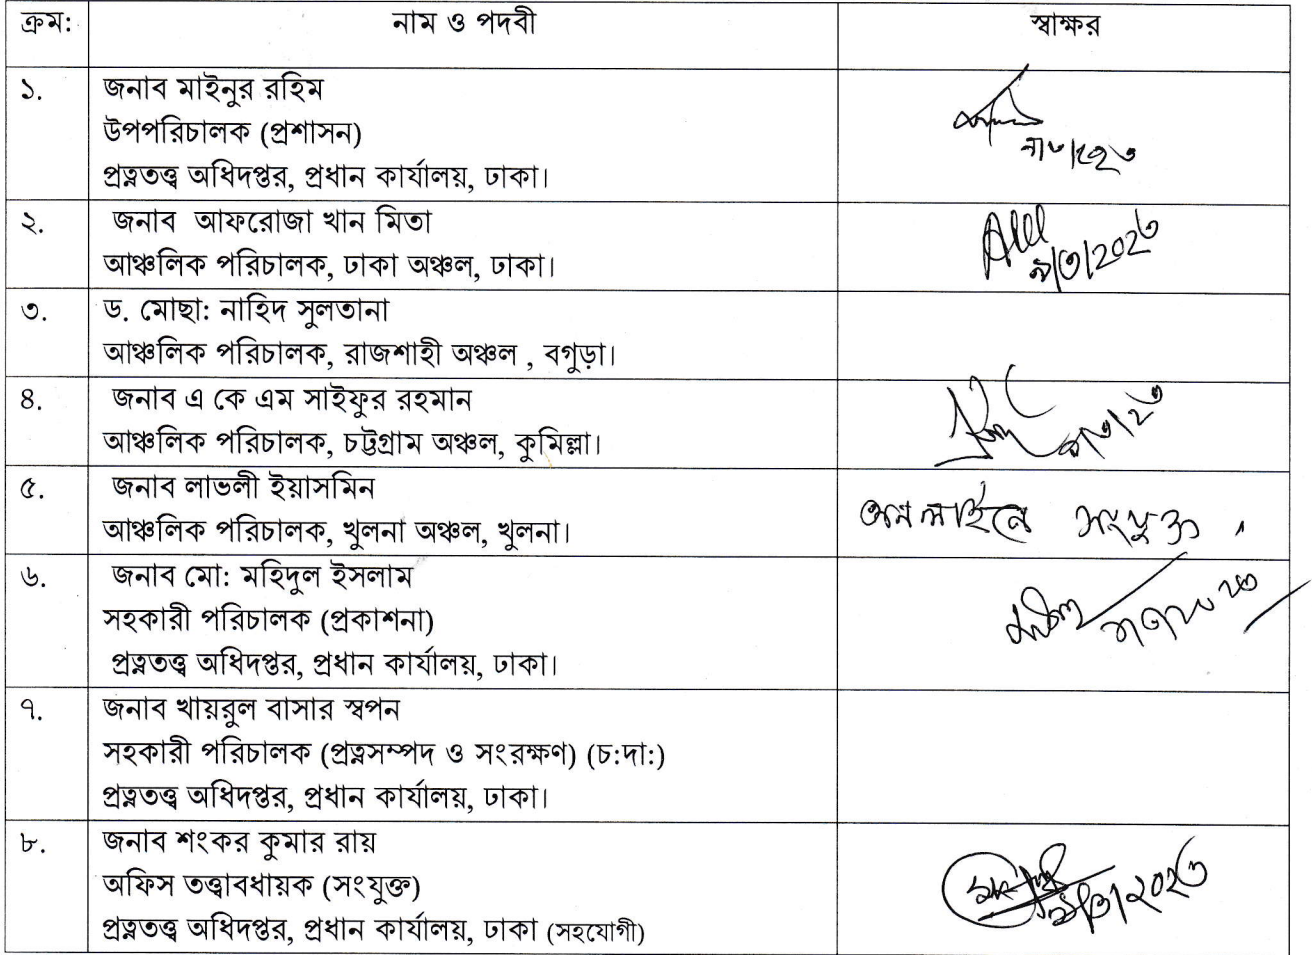 ক্রম: নাম ও পদবী স্বাক্ষর
১. জনাব মাইনুর রহিম
উপপরিচালক (প্রশাসন)
প্রত্নতত্ত্ব অধিদপ্তর, প্রধান কার্যালয়, ঢাকা।
২. জনাব আফরোজা খান মিতা
আঞ্চলিক পরিচালক, ঢাকা অঞ্চল, ঢাকা।
৩. ড. মোছা: নাহিদ সুলতানা
আঞ্চলিক পরিচালক, রাজশাহী অঞ্চল , বগুড়া।
৪. জনাব এ কে এম সাইফুর রহমান
আঞ্চলিক পরিচালক, চট্টগ্রাম অঞ্চল, কুমিল্লা।
৫. জনাব লাভলী ইয়াসমিন
অনলাইনে সংযুক্ত।
আঞ্চলিক পরিচালক, খুলনা অঞ্চল, খুলনা।
৬. জনাব মো: মহিদুল ইসলাম
সহকারী পরিচালক (প্রকাশনা)
প্রত্নতত্ত্ব অধিদপ্তর, প্রধান কার্যালয়, ঢাকা।
৭. জনাব খায়রুল বাসার স্বপন
সহকারী পরিচালক (প্রত্নসম্পদ ও সংরক্ষণ) (চ:দা:)
প্রত্নতত্ত্ব অধিদপ্তর, প্রধান কার্যালয়, ঢাকা।
৮. জনাব শংকর কুমার রায়
অফিস তত্ত্বাবধায়ক (সংযুক্ত)
প্রত্নতত্ত্ব অধিদপ্তর, প্রধান কার্যালয়, ঢাকা (সহযোগী)